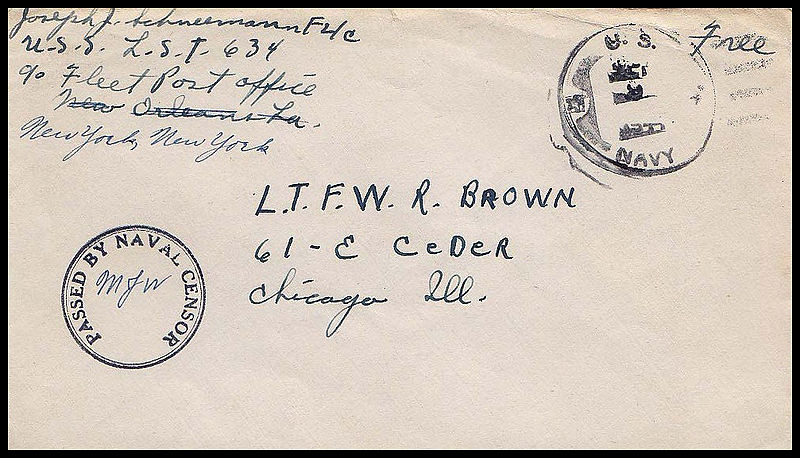 Joseph J. Schneemann F2/c
U.S.S. L.S.T. 634
c/o Fleet Post office
New Orleans La.
New York, New York
Free
U. S.
NAVY
L.T. F.W. R. BROWN
61-E CeDeR
Chicago Ill.
PASSED BY NAVAL CENSOR
MJW